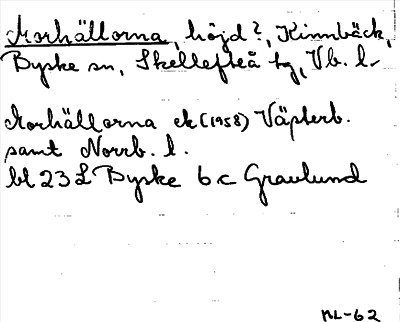 Morhällorna, höjd?, Kinnbäck,
Byske sn, Skellefteå tg, Vb. l.
Morhällorna ek (1958) Västerb.
samt Norrb. l.
bl 23 L Byske 6 c Gravlund
ML-62